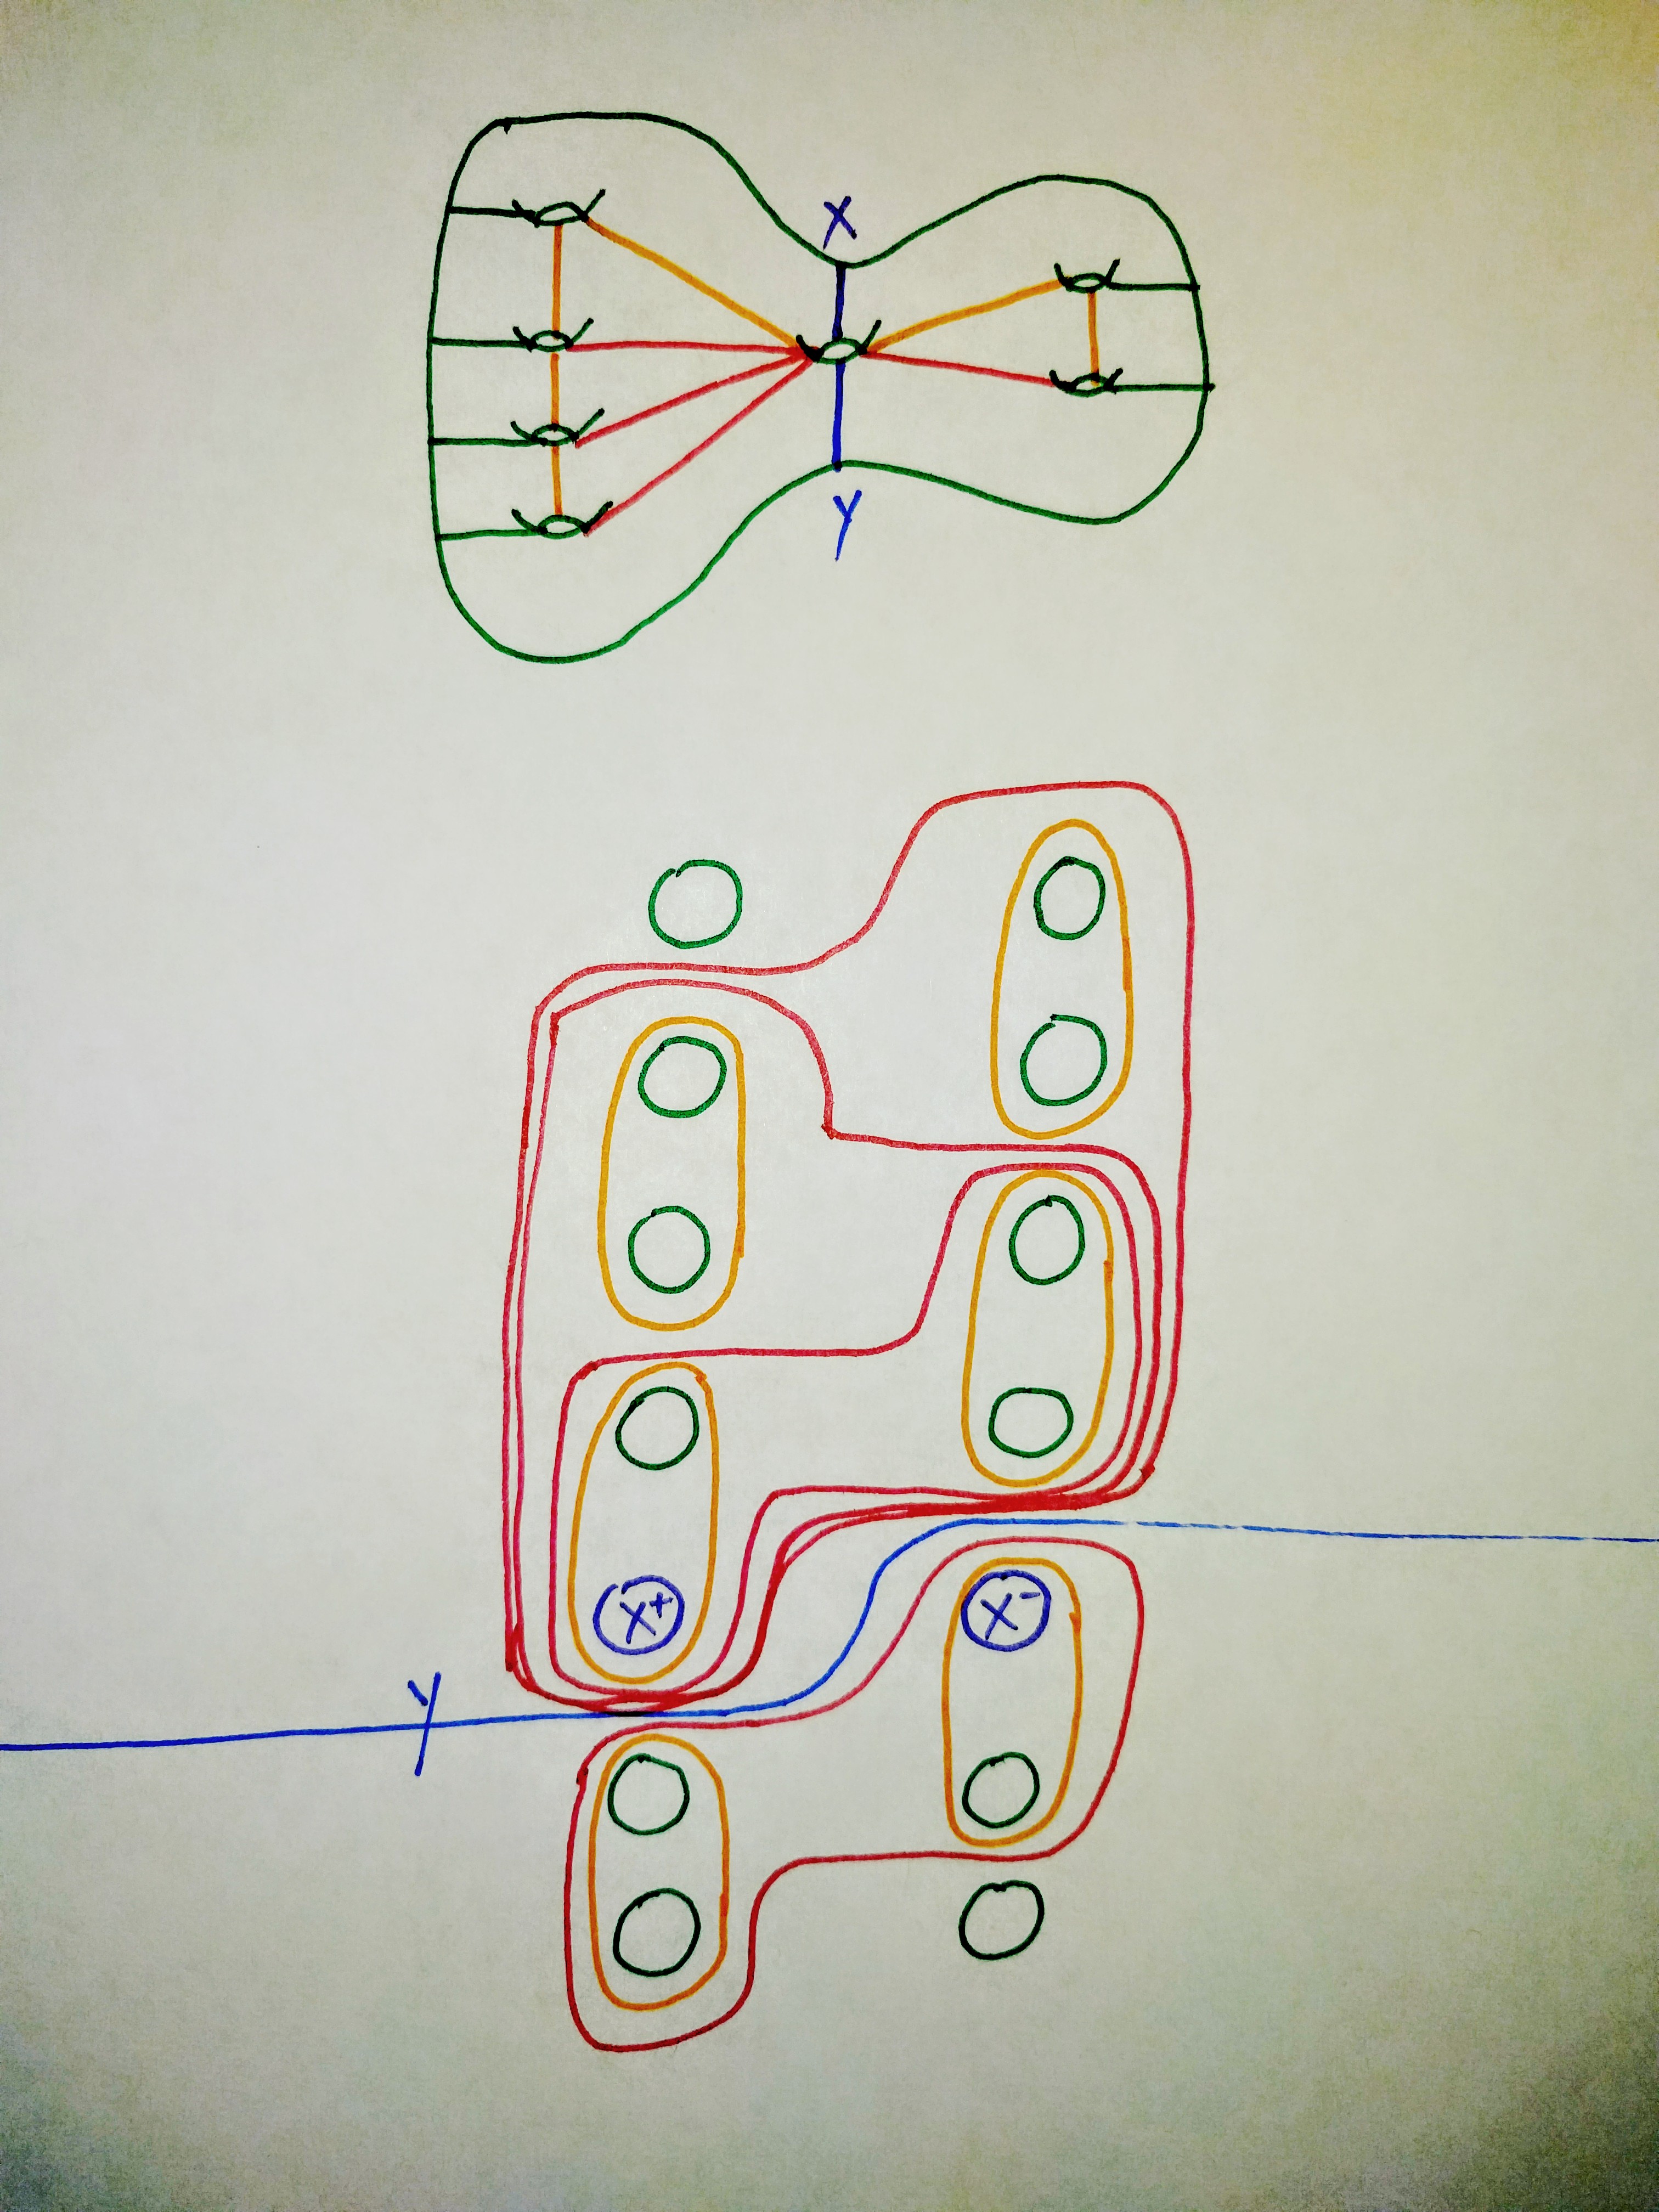 X
Y
X⁺
X⁻
Y